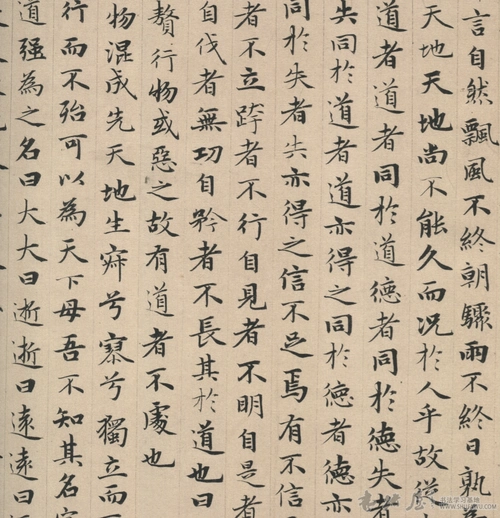 言自然飄風不終朝驟雨不終日孰為
天地天地尚不能久而況於人乎故從
道者道者同於道德者同於德失者
失同於道者道亦得之同於德者德亦
同於失者失亦得之信不足焉有不信
者不立跨者不行自見者不明自是者
自伐者無功自矜者不長其於道也曰
贅行物或惡之故有道者不處也
物混成先天地生寂兮寥兮獨立而不
行而不殆可以為天下母吾不知其名字
道強為之名曰大大曰逝逝曰遠遠曰
书法学习基地